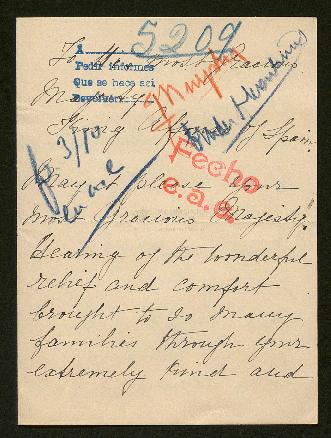 5209
A
Pedir informes
Que se hace aci
Devolver
To the most Gracious
Majesty
King Alfonso of Spain
3/10
Fecho
e.a.g.
May it please your
most Gracious Majesty.
Hearing of the wonderful
relief and comfort
brought to so many
families through your
extremely kind and